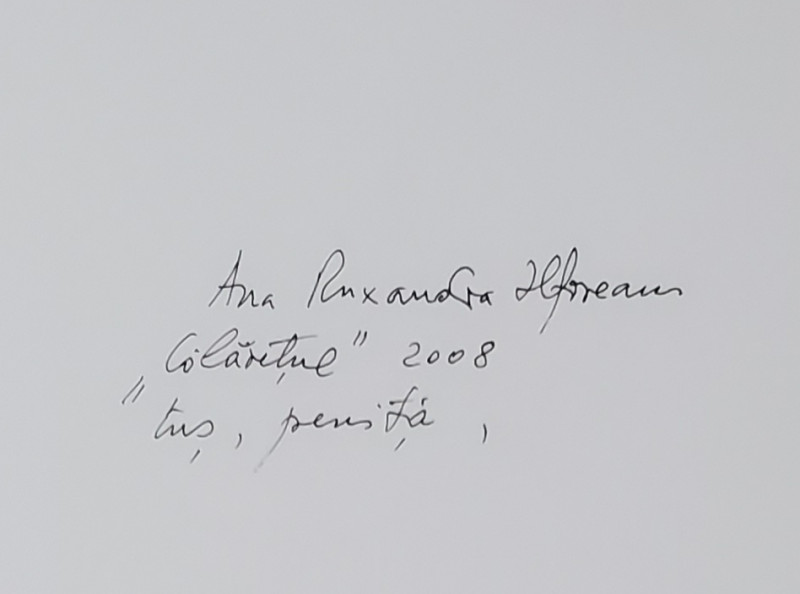 Ana Ruxandra Ilfoveanu
„Călărețul” 2008
tuș, peniță,